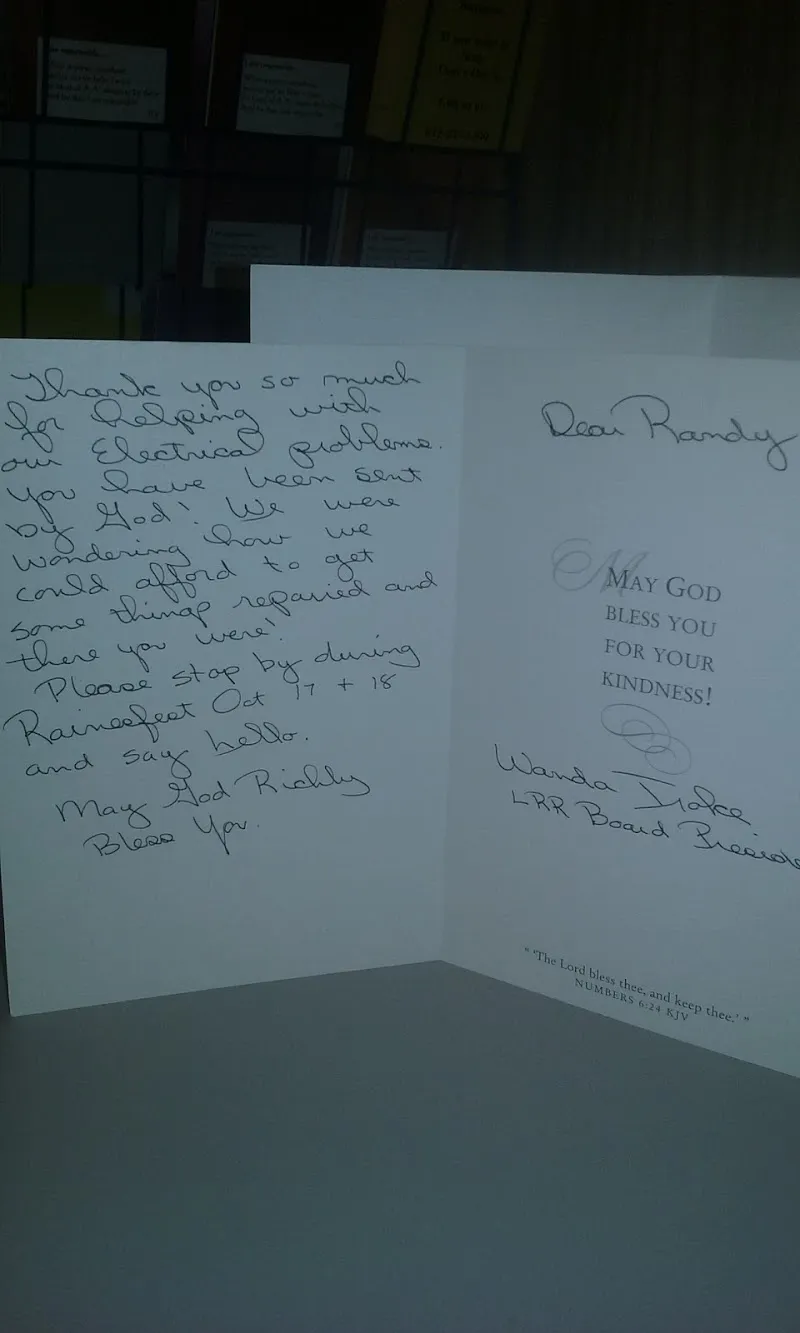 Thank you so much
for helping with
our Electrical problems.
You have been sent
by God! We were
wondering how we
could afford to get
some things reparied and
there you were!
Please stop by during
Rainesfest Oct 17 + 18
and say hello.
May God Richly
Bless You.
Dear Randy
MAY GOD
BLESS YOU
FOR YOUR
KINDNESS!
Wanda
LRR Board
" 'The Lord bless thee, and keep thee.' "
NUMBERS 6:24 KJV